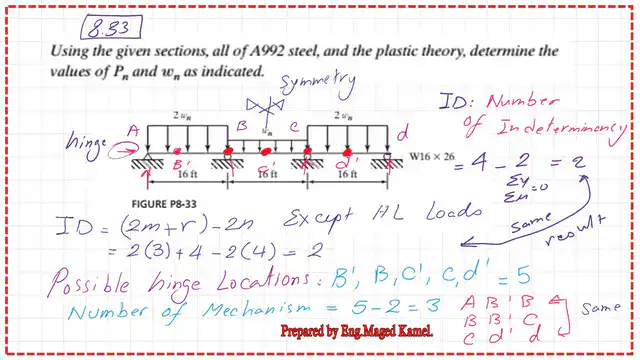 8.33
Using the given sections, all of A992 steel, and the plastic theory, determine the
values of Pn and wn as indicated.
symmetry
ID: Number
of Indeterminancy
= 4 - 2 = 2
Σy
Σx = 0
same
result
2 wn
wn
2 wn
hinge
A
B
C
d
B'
c'
d'
W16 × 26
16 ft
16 ft
16 ft
FIGURE P8-33
ID = (2m+r) - 2n Except HL Loads
= 2(3) + 4 - 2(4) = 2
Possible hinge Locations: B', B, C', C, d' = 5
Number of Mechanism = 5 - 2 = 3
A B' B
B B' C
C d' d
Same
Prepared by Eng.Maged Kamel.